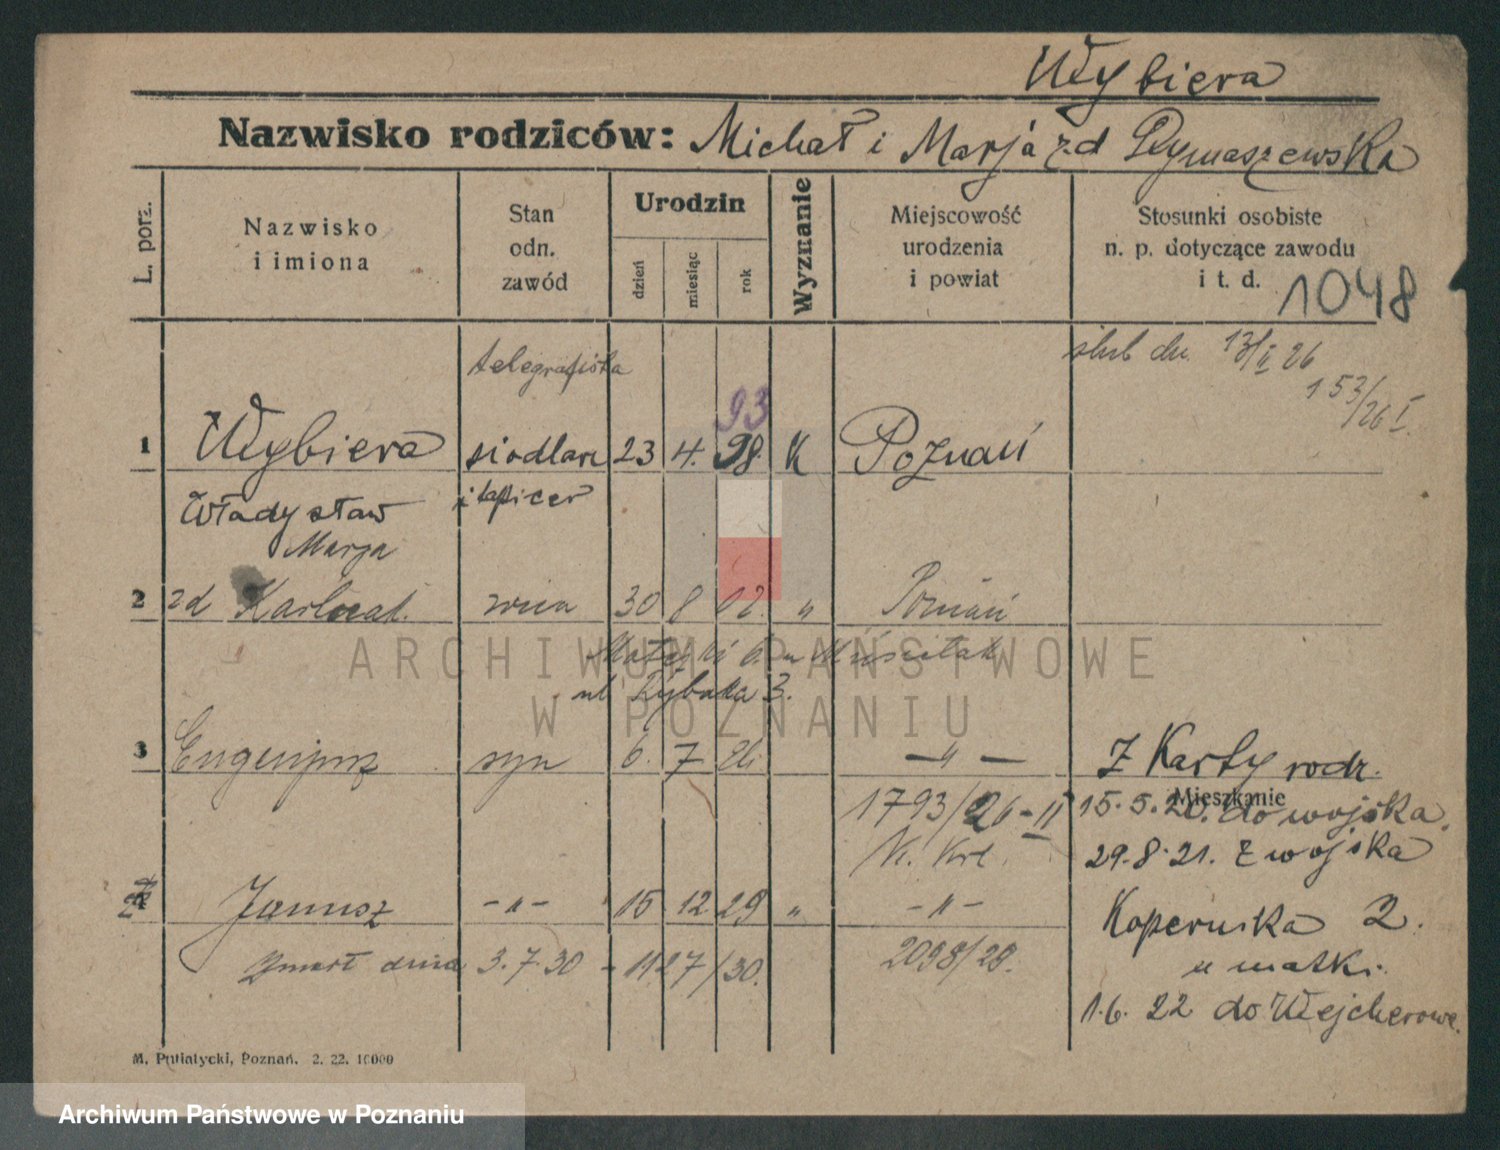 Wybiera
Nazwisko rodziców: Michał i Marja z.d Dymaszewska
L. porz.
Nazwisko
i imiona
Stan
odn.
zawód
Urodzin
dzień
miesiąc
rok
Wyznanie
Miejscowość
urodzenia
i powiat
Stosunki osobiste
n. p. dotyczące zawodu
i t. d.
1048
telegrafista
ślub dn. 13/I 26
153/26 I.
93
1 Wybiera siodlarz 23 4. 98. K Poznań
Władysław i tapicer
Marja
2 zd żona 30 8 02. " Poznań
ul. Rybaka 3.
3 Eugenjusz syn 6. 7 26. — " — Z Karty rodz.
Mieszkanie
1793/26 - II 15.5.20. do wojska.
29.8.21. z wojska
4 Janusz - " - 15 12 29 " - " - Kopernika 2.
Zmarł dnia 3.7.30 - 1127/30. 2098/29. u matki.
1.6.22 do Wejcherowa.
M. Putiatycki, Poznań. 2. 22. 10000
ARCHIWUM PAŃSTWOWE
W POZNANIU
Archiwum Państwowe w Poznaniu